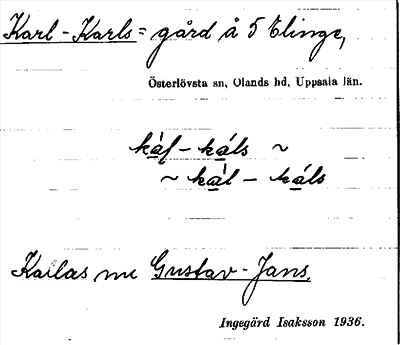 Karl-Karls = gård å 5 Elinge,
Österlövsta sn, Olands hd, Uppsala län.
ka̲l - ká̲ls ~
~ ka̲l - ká̲ls
Kallas nu Gustav-Jans.
Ingegärd Isaksson 1936.